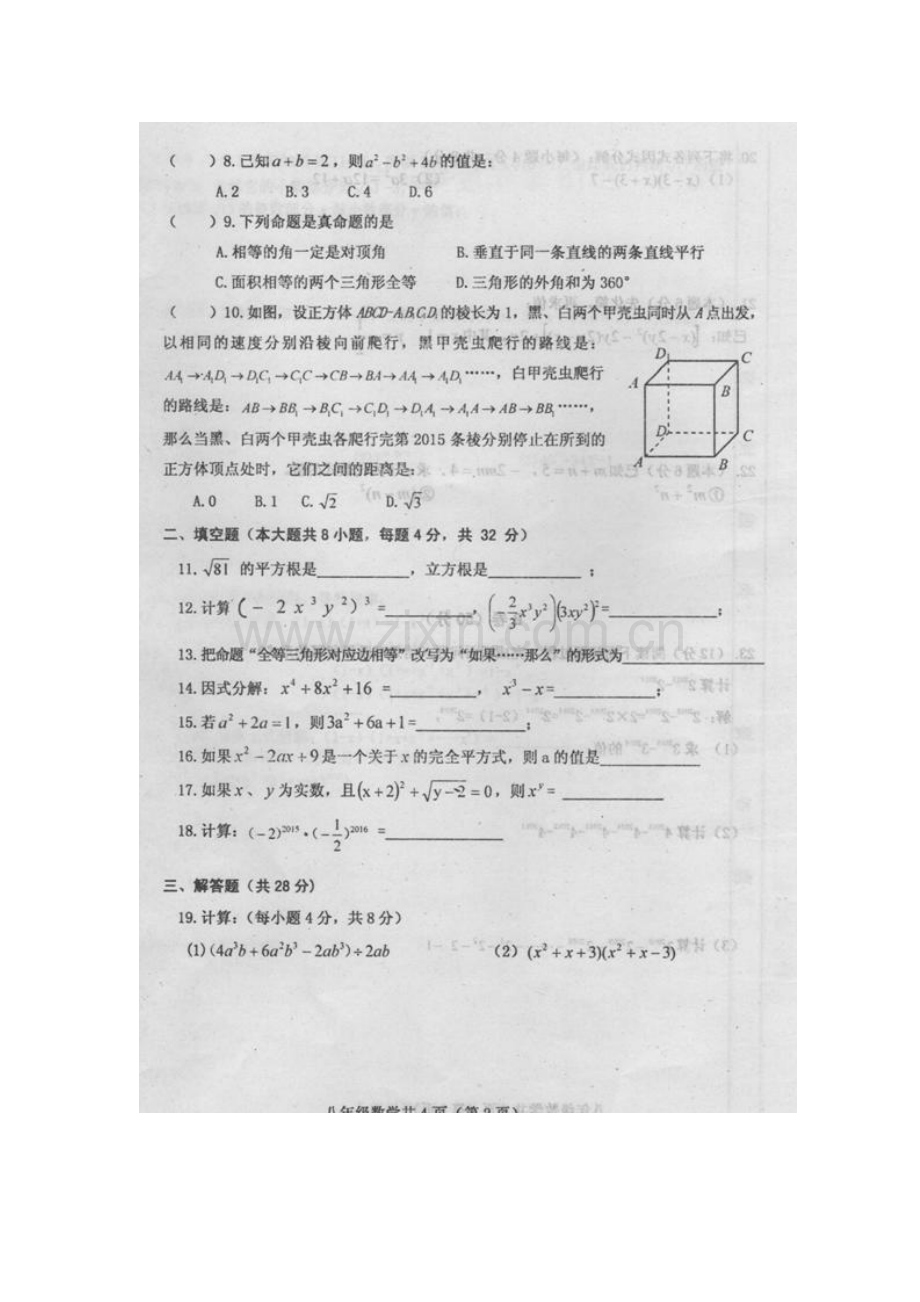 ( )8.已知a+b=2，则a²-b²+4b的值是:
A.2 B.3 C.4 D.6
( )9.下列命题是真命题的是
A.相等的角一定是对顶角 B.垂直于同一条直线的两条直线平行
C.面积相等的两个三角形全等 D.三角形的外角和为360°
( )10.如图，设正方体ABCD-A₁B₁C₁D₁的棱长为1，黑、白两个甲壳虫同时从A点出发，
以相同的速度分别沿棱向前爬行，黑甲壳虫爬行的路线是：
AA₁→A₁D₁→D₁C₁→C₁C→CB→BA→AA₁→A₁D₁……，白甲壳虫爬行
的路线是：AB→BB₁→B₁C₁→C₁D₁→D₁A₁→A₁A→AB→BB₁……，
那么当黑、白两个甲壳虫各爬行完第2015条棱分别停止在所到的
正方体顶点处时，它们之间的距离是:
D₁ C A B D C A B
A.0 B.1 C.√2 D.√3
二、填空题（本大题共8小题，每题4分，共 32 分）
11.√81 的平方根是________，立方根是________；
12.计算(-2x³y²)³=________，(-2/3x³y²)(3xy²)²=________；
13.把命题“全等三角形对应边相等”改写为“如果……那么”的形式为________
14.因式分解：x⁴+8x²+16 =________，x³-x=________；
15.若a²+2a=1，则3a²+6a+1=________；
16.如果x²-2ax+9是一个关于x的完全平方式，则a的值是________
17.如果x、y为实数，且(x+2)²+√y-2=0，则xʸ=________
18.计算：(-2)²⁰¹⁵·(-1/2)²⁰¹⁶ =________
三、解答题（共28分）
19.计算：（每小题4分，共8分）
(1)(4a³b+6a²b³-2ab³)÷2ab (2) (x²+x+3)(x²+x-3)
www.zixin.com.cn